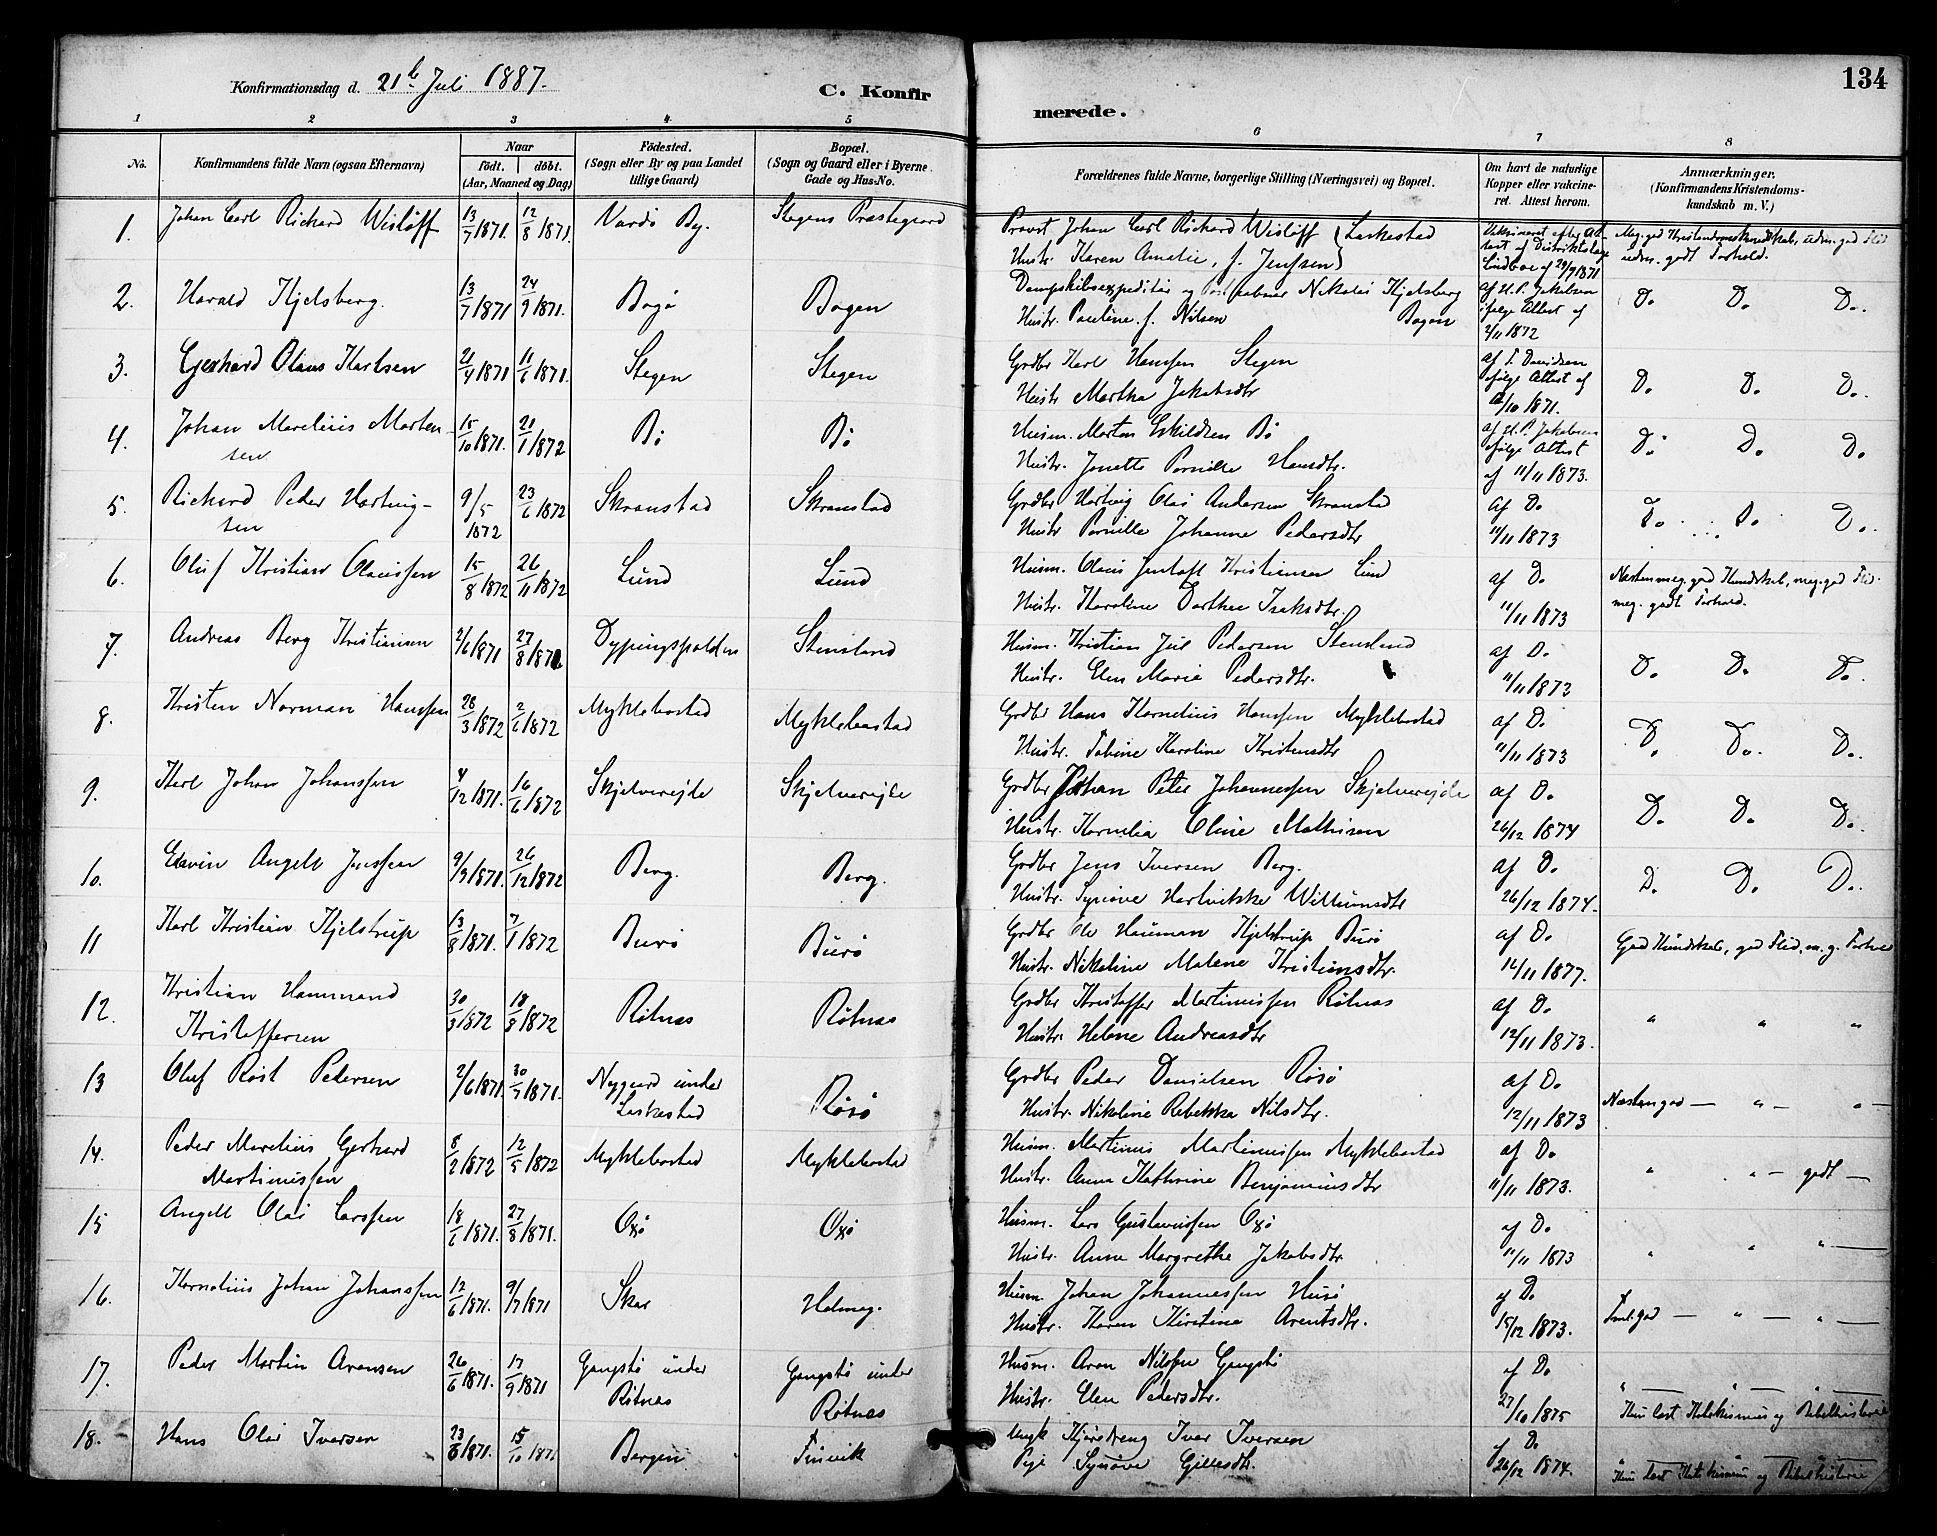 Konfirmationsdag d. 21de Juli 1887.
C. Konfir
merede.
134
1 2 3 4 5 6 7 8
No. Konfirmandens fulde Navn (ogsaa Efternavn) Naar födt. döbt. (Aar, Maaned og Dag) Födested. (Sogn eller By og paa Landet tillige Gaard) Bopæl. (Sogn og Gaard eller i Byerne Gade og Hus-No. Forældrenes fulde Navne, borgerlige Stilling (Næringsvei) og Bopæl. Om havt de naturlige Kopper eller vakcineret. Attest herom. Anmærkninger. (Konfirmandens Kristendomskundskab m. V.)
1. Johan Carl Richard Wisløff 13/7 1871. 12/8 1871. Vardø By. Stegens Præstegaard Provst Johan Carl Richard Wisløff Leskestad
Hustr. Karen Amalie, f. Jenssen
Vakcineret efter Attest af Distriktslæge Lindboe af 29/9 1871
Meg. god Kristendomskundskab, udm. god Flid
udm. godt Forhold.
2. Harald Kjelsberg. 13/7 1871 24/9 1871. Bogø Bogen Dampskibsexpeditør og Postaabner Nikolai Kjelsberg
Hustr. Pauline f. Nilsen Bogen
af H.P. Jakobsen ifølge Attest af 2/11 1872 Do Do Do.
3. Gerhard Olaus Karlsen 21/4 1871 11/6 1871. Stegen Stegen Grdbr Karl Hanssen Stegen
Hustr Martha Jakobsdtr
af T. Davidsen ifølge Attest af /10 1871. Do Do Do.
4. Johan Marelius Martensen 15/10 1871. 21/1 1872 Bø Bø Husm. Morten Eskildsen Bø
Hustr. Jonette Pernille Hansdtr.
af H.P. Jakobsen ifølge Attest af 11/11 1873. Do Do Do
5. Richard Peder Hartvigsen 9/5 1872 23/6 1872 Skranstad Skranstad Grdbr Hartvig Olai Andersen Skranstad
Hustr Pernille Johanne Pedersdtr
Af Do 11/11 1873 Do. Do Do.
6. Oluf Kristian Olaussen 15/8 1872 26/11 1872 Lund Lund Husm. Olaus Jentoft Kristiansen Lund
Hustr. Karoline Dorthea Isaksdtr.
af Do. 11/11 1873 Næsten meg. god Kundskab, meg. god Flid.
meg. godt Forhold.
7. Andreas Berg Kristiansen 2/6 1871 27/8 1871 Dypingspolden Stensland Husm. Kristian Jul Pedersen Stensland
Hustr. Elen Marie Pedersdtr.
af Do. 11/11 1873 Do. Do Do.
8. Kristen Norman Hanssen 28/3 1872 2/6 1872 Myklebostad Myklebostad Grdbr Hans Kornelius Hanssen Myklebostad
Hustr. Tobine Karoline Kristensdtr
af Do. 11/11 1873 Do. Do. Do.
9. Karl Johan Johanssen 4/12 1871. 16/6 1872 Skjelvereide Skjelvereide Grdbr Johan Peter Johannessen Skjelvereide
Hustr. Kornelia Oline Mathisen
af Do. 26/12 1874 Do. Do. Do.
10. Edvin Angell Jenssen 9/9 1871. 26/12 1872 Berg. Berg. Grdbr Jens Iversen Berg.
Hustr. Synnøve Hartvikke Williumsdtr
af Do. 26/12 1874. Do. Do. Do.
11 Karl Kristian Kjelstrup 13/8 1871. 7/1 1872 Burø Burø Grdbr Ole Hauman Kjelstrup Burø
Hustr. Nikoline Malene Kristiansdtr.
af Do. 12/11 1877. God Kundskab, god Flid, m. g. Forhold
12. Kristian Hammand Kristoffersen 30/3 1872 18/8 1872 Røtnes Røtnes Grdbr Kristoffer Martinussen Røtnes
Hustr. Helene Andreasdtr
af Do. 12/11 1873. " " "
13 Oluf Rost Pedersen 2/6 1871. 30/7 1871. Nygaard under Leskestad Røsø Grdbr Peder Danielsen Røsø
Hustr. Nikoline Rebekka Nilsdtr.
af Do. 12/11 1873 Næsten god — " — " —
14. Peder Marelius Gerhard Martinussen 8/2 1872 12/5 1872 Myklebostad Myklebostad Husm. Martinus Martinussen Myklebostad
Hustr. Anna Kathrine Benjaminsdtr
af Do. 11/11 1873. " " — godt —
15 Angell Olai Larssen 18/6 1871. 27/8 1871. Oxø Oxø Husm. Lars Gustavussen Oxø
Hustr. Anne Margrethe Jakobsdtr.
af Do. 11/11 1873 " " " —
16. Kornelius Johan Johanssen 12/6 1871. 9/7 1871 Skar Holmeg. Husm. Johan Johannessen Husø
Hustr. Karen Kirstine Arentsdtr.
af Do. 15/12 1873. Tml. god — " — " —
17. Peder Martin Aronsen 26/6 1871. 17/9 1871 Gangstø under Røtnes Gangstø under Røtnes Husm. Aron Nilssen Gangstø
Hustr. Elen Pedersdtr.
af Do. 27/10 1875 " — " — " —
Kun læst Katekismus og Bibelhistorie
18. Hans Olai Iversen 23/8 1871. 15/10 1871 Bergen Finvik Ungk Kjøredreng Iver Iversen
Pige Synøve Gillesdtr.
af Do. 26/12 1874. " " "
Kun læst Katekismus og Bibelhistorie